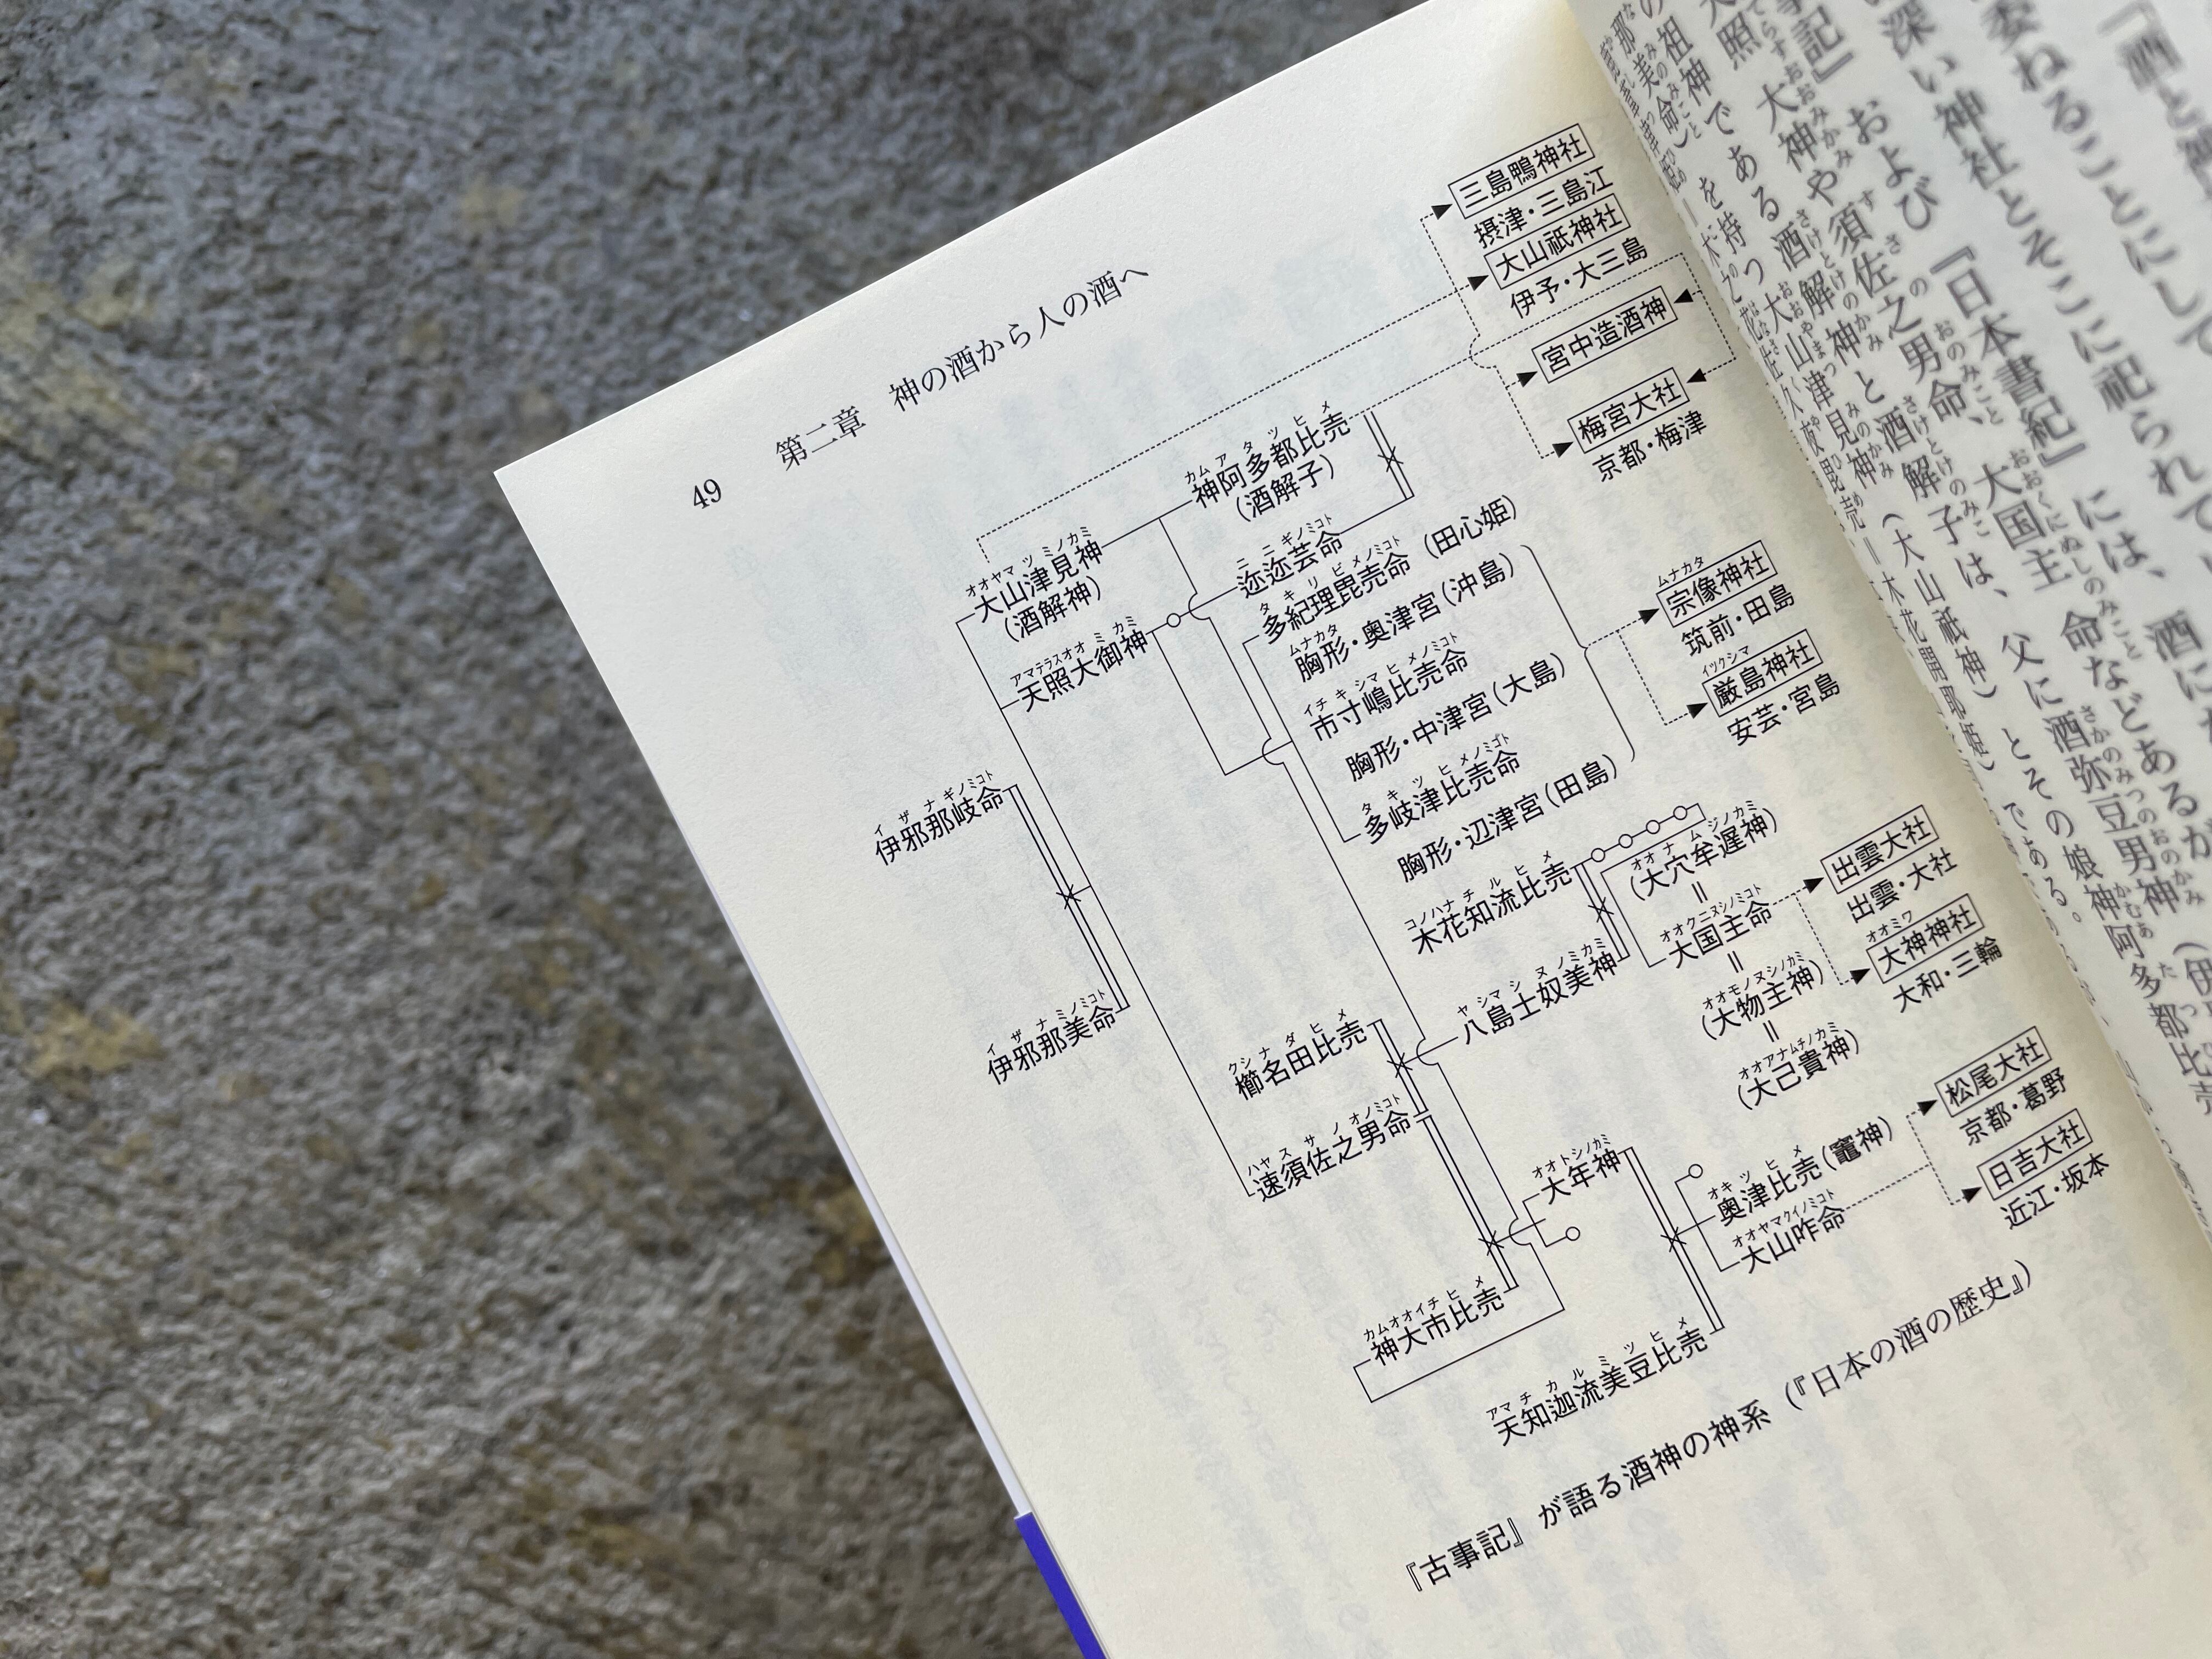 49
第二章　神の酒から人の酒へ
三島鴨神社
摂津・三島江
大山祇神社
伊予・大三島
宮中造酒神
梅宮大社
京都・梅津
カムアタツヒメ
神阿多都比売
(酒解子)
オオヤマツミノカミ
大山津見神
(酒解神)
ニニギノミコト
迩迩芸命
アマテラスオオミカミ
天照大御神
タキリビメノミコト
多紀理毘売命 (田心姫)
ムナカタ
胸形・奥津宮(沖島)
イチキシマヒメノミコト
市寸嶋比売命
胸形・中津宮(大島)
タキツヒメノミゴト
多岐津比売命
胸形・辺津宮(田島)
ムナカタ
宗像神社
筑前・田島
イツクシマ
厳島神社
安芸・宮島
イザナギノミコト
伊邪那岐命
イザナミノミコト
伊邪那美命
コノハナチルヒメ
木花知流比売
オオナムジノカミ
(大穴牟遅神)
=
オオクニヌシノミコト
大国主命
=
オオモノヌシノカミ
(大物主神)
=
オオアナムチノカミ
(大己貴神)
出雲大社
出雲・大社
オオミワ
大神神社
大和・三輪
ヤシマシヌノミカミ
八島士奴美神
クシナダヒメ
櫛名田比売
ハヤスサノオノミコト
速須佐之男命
オオトシノカミ
大年神
オキツヒメ
奥津比売(竈神)
オオヤマクイノミコト
大山咋命
松尾大社
京都・葛野
日吉大社
近江・坂本
カムオオイチヒメ
神大市比売
アマチカルミツヒメ
天知迦流美豆比売
『古事記』が語る酒神の神系（『日本の酒の歴史』）
『酒と
委ねることにして
深い神社とそこに祀られて
『日本書紀』には、酒に
記』および
大神や須佐之男命、大国主命などとあるが
照
の祖神である酒解神と酒解子は、父に酒弥豆男神
那美命)
を持つ大山津見神(大山祇神)とその娘神阿多都比売
である。